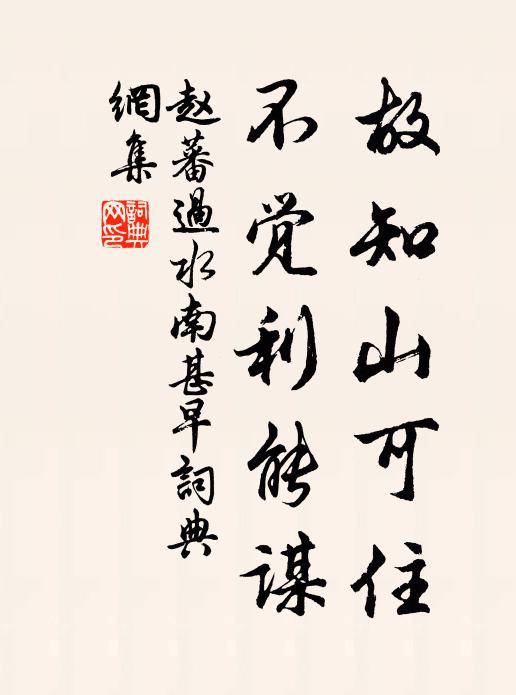 故知山可住
不觉利能谋
赵蕃過水南甚早詞典
網集
詞典
网印